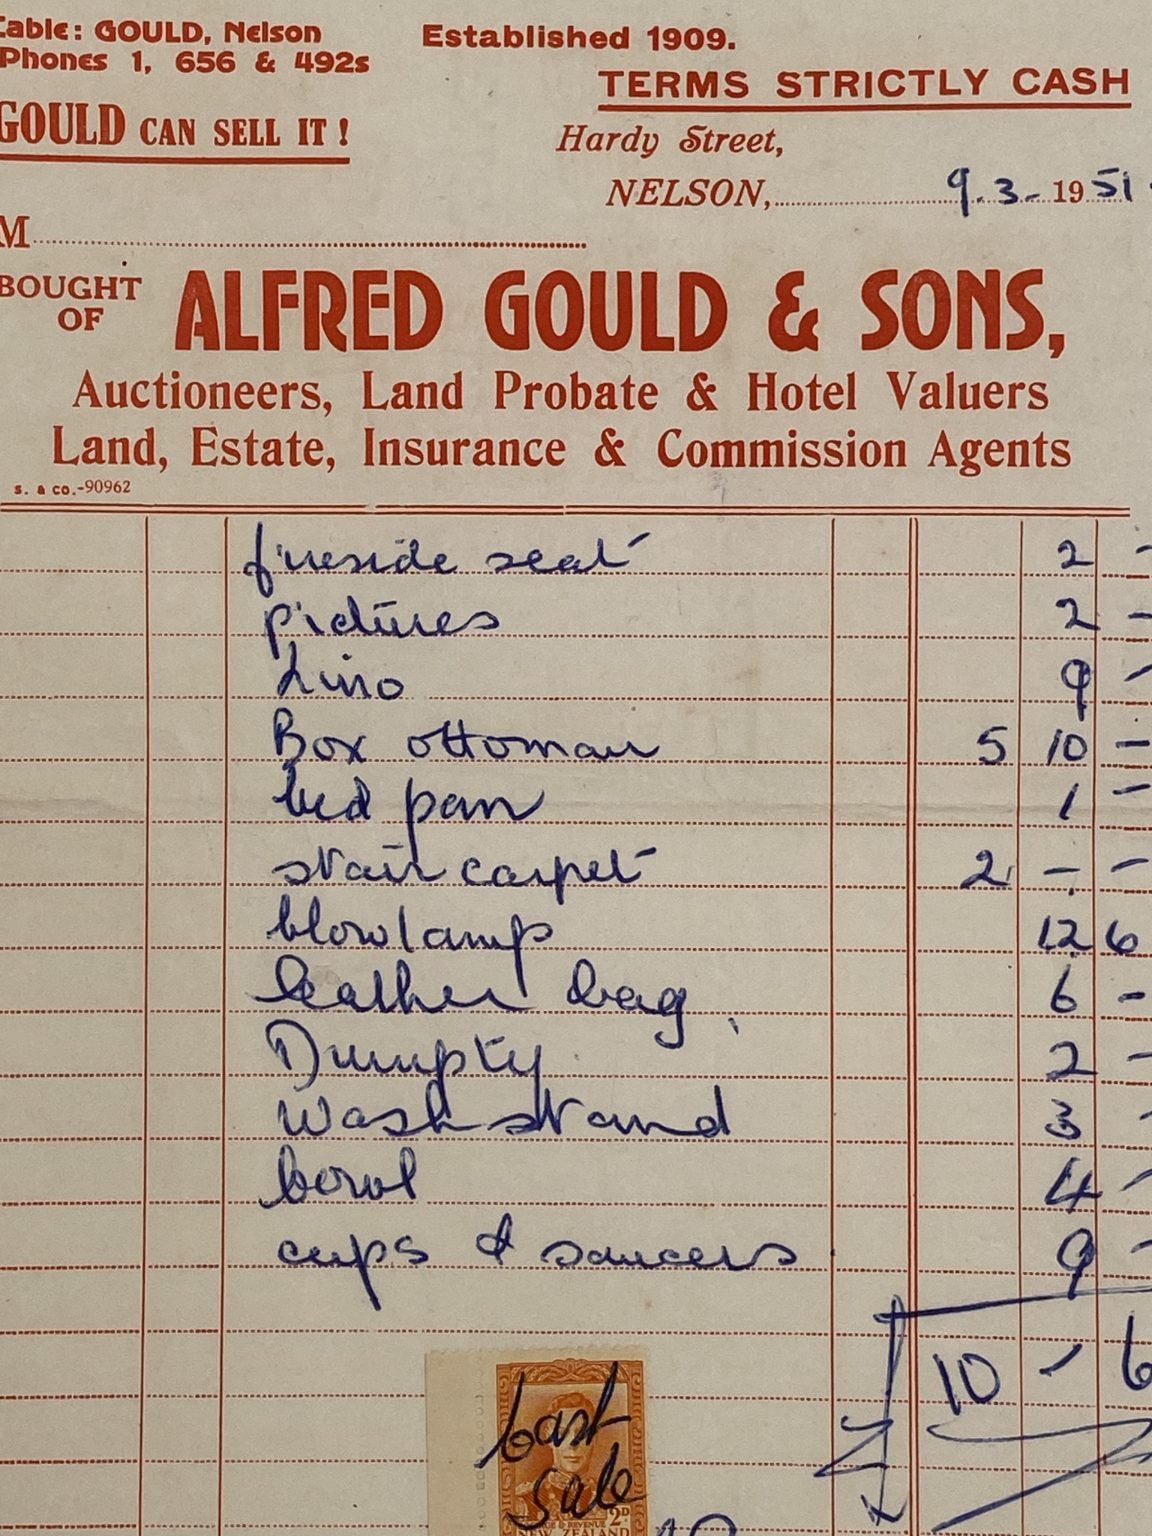 Cable: GOULD, Nelson
Established 1909.
Phones 1, 656 & 492s
TERMS STRICTLY CASH
GOULD CAN SELL IT!
Hardy Street,
NELSON, 9.3-1951.
M
BOUGHT OF
ALFRED GOULD & SONS,
Auctioneers, Land Probate & Hotel Valuers
Land, Estate, Insurance & Commission Agents
S. & CO.-90962
fireside seat 2 -
pictures 2 -
Lino 9 -
Box ottoman 5 10 -
bed pan 1 -
stair carpet 2 - -
blowlamp 12 6
leather bag 6 -
Dumpty 2 -
Wash stand 3 -
bowl 4 -
cups & saucers 9 -
£ 10 - 6
Cash
Sale
2D
NEW ZEALAND